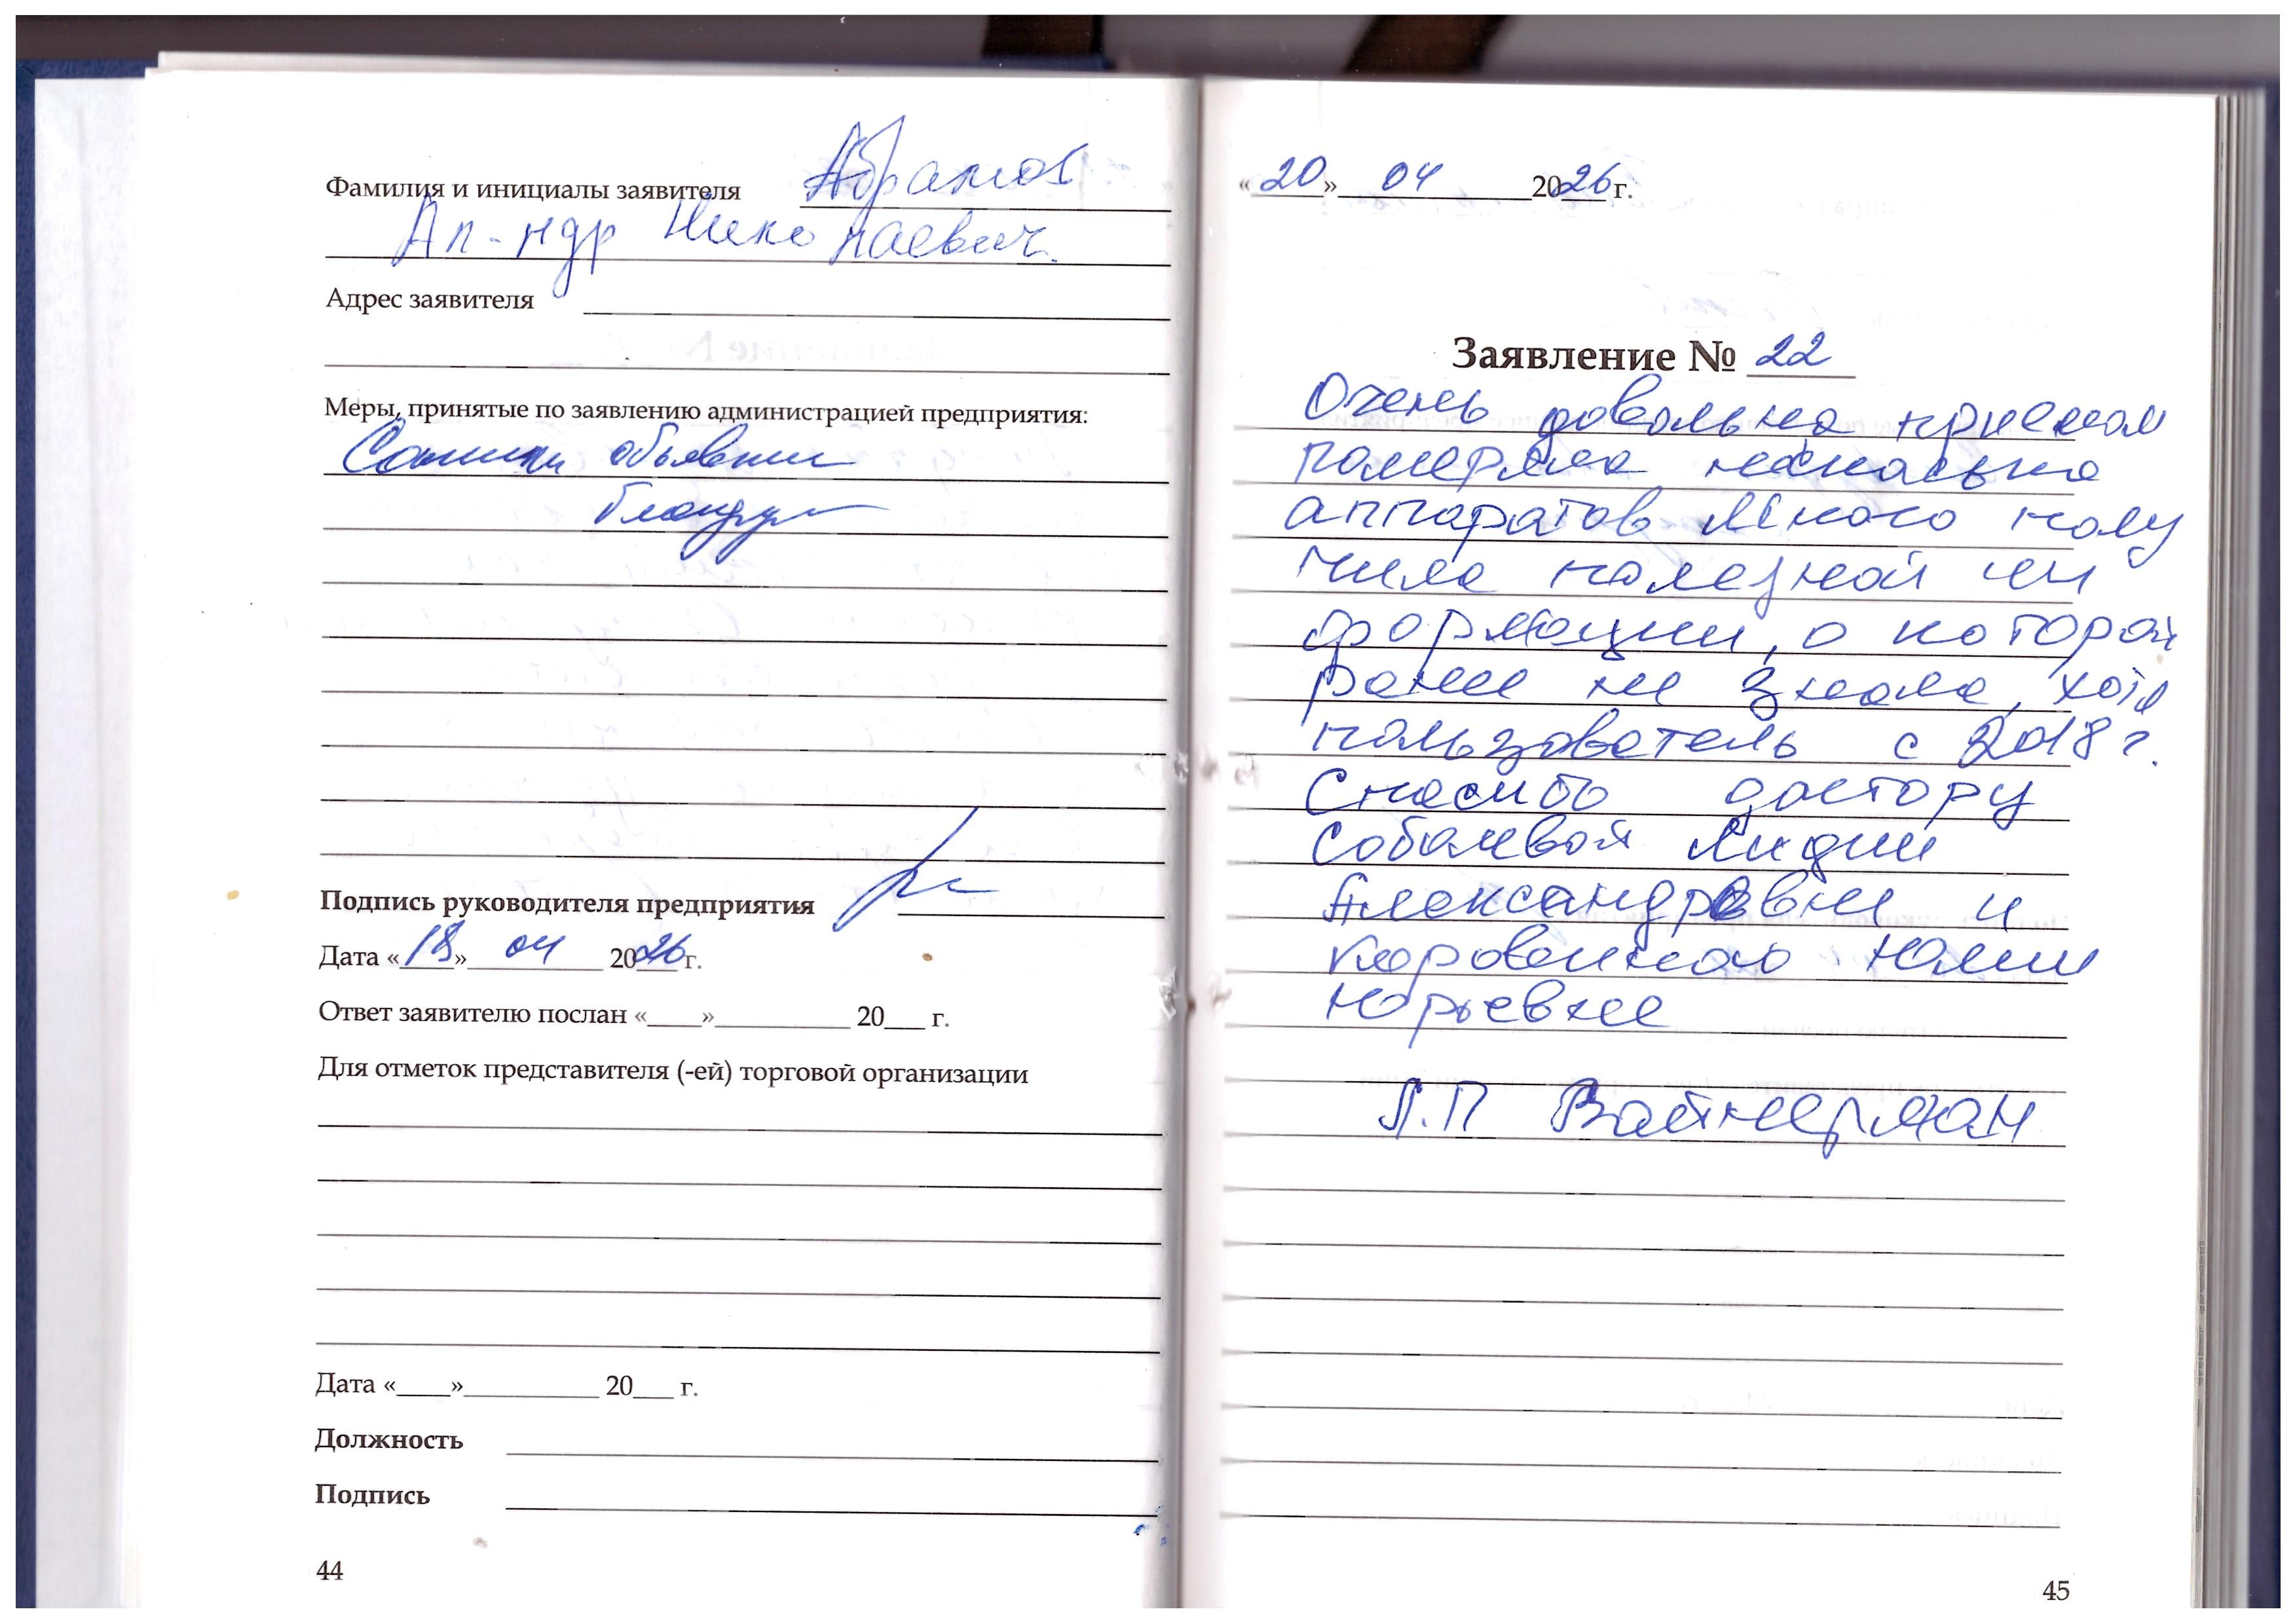 Фамилия и инициалы заявителя Абрамов
Ал-ндр Николаевич.
Адрес заявителя
Меры, принятые по заявлению администрацией предприятия:
объявили
Подпись руководителя предприятия
Дата «18» 04 2026 г.
Ответ заявителю послан «____»__________ 20___ г.
Для отметок представителя (-ей) торговой организации
Дата «____»__________ 20___ г.
Должность
Подпись
44
«20» 04 2026 г.
Заявление № 22
Очень довольна приемом
померяла несколько
аппаратов Много полу
чила полезной ин
формации, о которой
ранее не знала, хотя
пользователь с 2018 г.
Спасибо доктору
Соболевой Лидии
Александровне и
Юлии
Юрьевне
Л.П Вайнерман
45